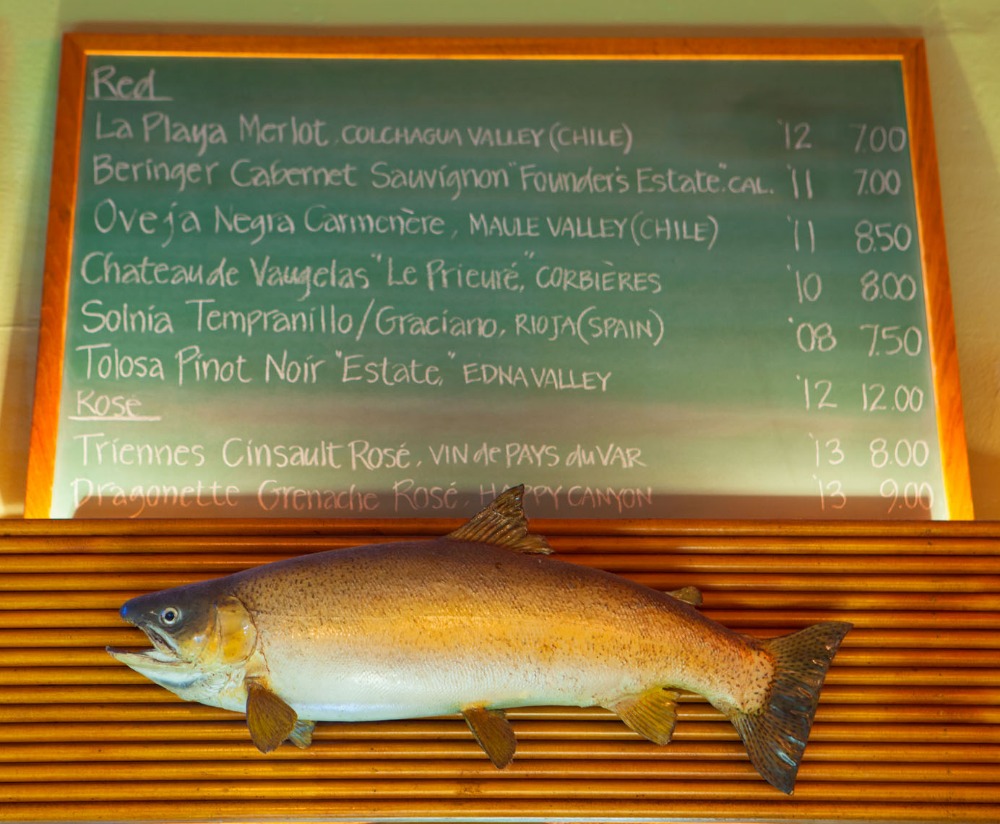 Red
La Playa Merlot, COLCHAGUA VALLEY (CHILE) '12 7.00
Beringer Cabernet Sauvignon "Founder's Estate" CAL. '11 7.00
Oveja Negra Carmenère, MAULE VALLEY (CHILE) '11 8.50
Chateau de Vaugelas "Le Prieuré," CORBIÈRES '10 8.00
Solnia Tempranillo/Graciano, RIOJA (SPAIN) '08 7.50
Tolosa Pinot Noir "Estate," EDNA VALLEY '12 12.00
Rosé
Triennes Cinsault Rosé, VIN de PAYS du VAR '13 8.00
Dragonette Grenache Rosé, HAPPY CANYON '13 9.00